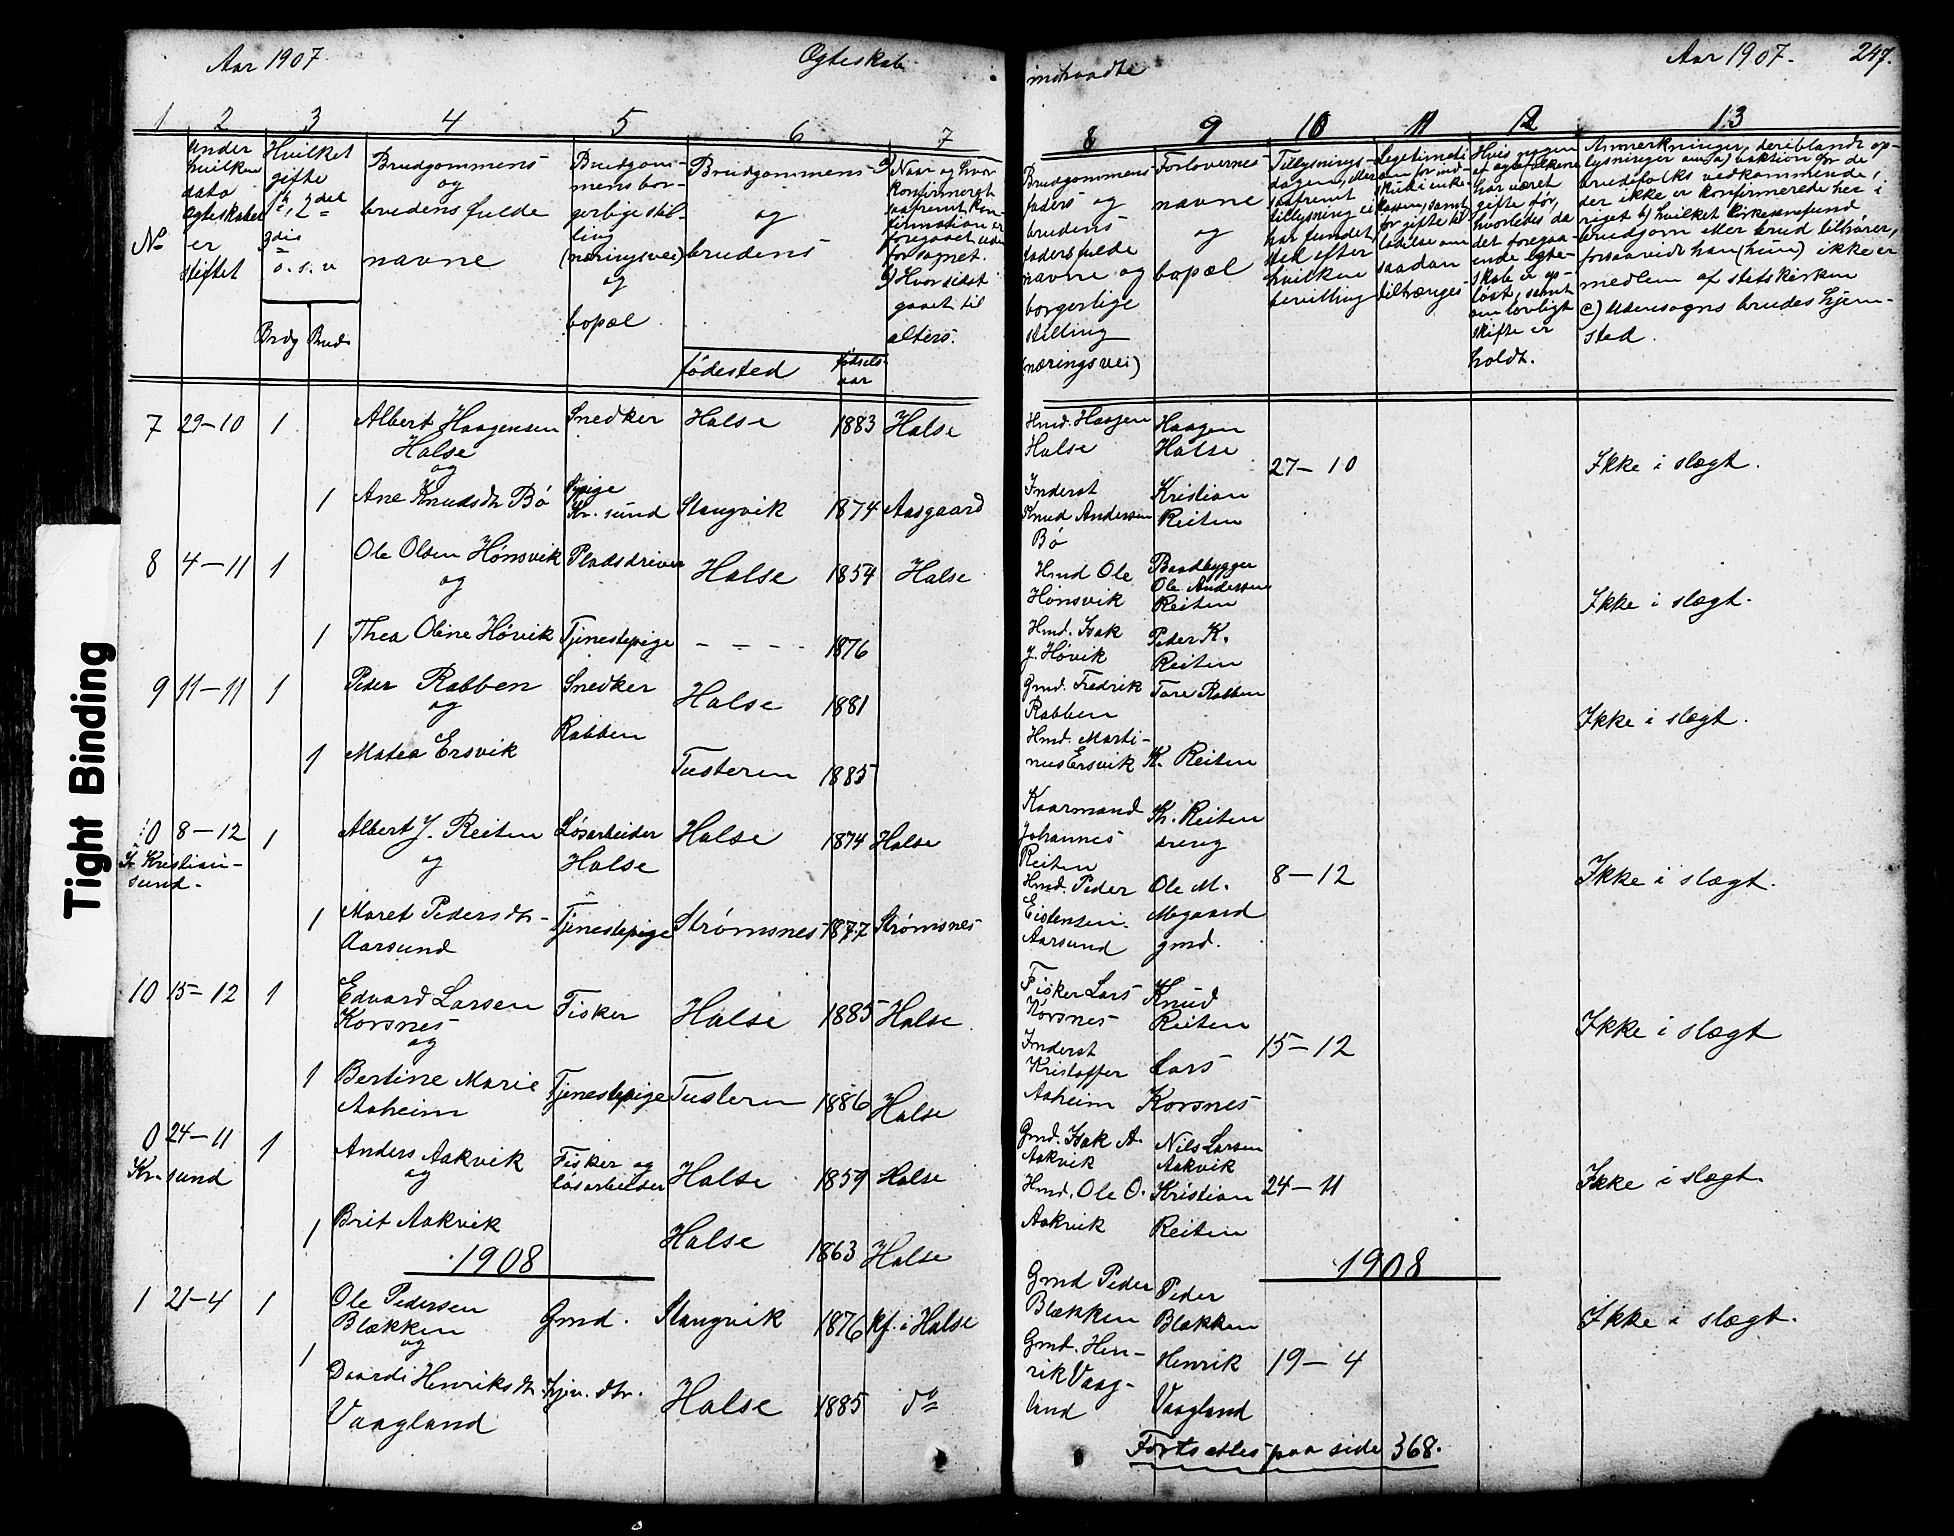 Aar 1907. Ægteskab
1 2 3 4 5 6 7
No
Under hvilken dato ægteskabet er stiftet
Hvilket gifte 1ste, 2det 3die o.s.v
Brdg Brud
Brudgommens og brudens fulde navne
Brudgommens borgerlige stilling (næringsvei) og bopæl
Brudgommens og brudens
fødested fødselsaar
a) Naar og hvor konfirmeret saafremt konfirmation er foregaaet udenfor sognet.
b) Hvor sidst gaaet til alters.
7 29-10 1 Albert Haagensen Snedker Halse 1883 Halse
Halse
og
1 Ane Knudsdtr Bø Sypige Kr.sund Stangvik 1874 Aasgaard
8 4-11 1 Ole Olsen Hønsvik Pladsdriver Halse 1854 Halse
og
1 Thea Oline Høvik Tjenestepige - - - - 1876
9 11-11 1 Peder Rabben Snedker Halse 1881
og Rabben
1 Matea Ersvik Tusteren 1885
10 8-12 1 Albert J. Reiten Løsarbeider Halse 1874 Halse
Kristian-
sund.
og Halse
1 Maret Pedersdtr- Tjenestepige Strømsnes 1877 Strømsnes
Aarsund
10 15-12 1 Edvard Larsen Fisker Halse 1885 Halse
Korsnes
og
1 Bertine Marie Tjenestepige Tusteren 1886 Halse
Aaheim
0 24-11 1 Anders Aakvik Fisker og Halse 1859 Halse
Kr.sund og løsarbeider
1 Brit Aakvik Halse 1863 Halse
1908
1 21-4 1 Ole Pedersen Gmd. Stangvik 1876 kf. i Halse
Blækken
og
1 Daardi Henriksdtr. hjv. dtr. Halse 1885 do
Vaagland
indtraadte Aar 1907. 247.
8 9 10 11 12 13
Brudgommens faders og brudens faders fulde navne og borgerlige stilling (næringsvei)
Forlovernes navne og bopæl
Tillysningsdagen, eller saafremt tillysning ei har fundet sted efter hvilken bevilling
Hvis nogen af ægtefolkene har været gifte før, hvorledes da det foregaaende ægteskab er opløst, samt om lovligt skifte er holdt.
Anmerkninger, deriblandt oplysninger om a) vaktion for de brudefolks vedkommende, der ikke er konfirmerede her i riget b) hvilket kirkesamfund brudgom eller brud tilhører, forsaavidt han (hun) ikke er medlem af statskirken
c) Udensogns brudes hjemsted.
Hmd. Haagen Haagen
Halse Halse 27-10 Ikke i slægt.
Inderst Kristian
Knud Andersen Reiten
Bø
Hmd Ole Baadbygger
Hønsvik Ole Andersen
Reiten Ikke i slægt.
Hmd. Isak Peder K.
J. Høvik Reiten
Gmd. Fredrik Tore Rabben
Rabben Ikke i slægt.
Hmd. Marti-
nus Ersvik K. Reiten
Kaarmand Kr. Reiten
Johannes
Reiten 8-12 Ikke i slægt.
Hmd. Peder Ole M.
Eistensen. Mogaard
Aarsund gmd.
Fisker Lars Knud
Korsnes Reiten 15-12 Ikke i slægt
Inderst
Kristoffer Lars
Aaheim Korsnes
Gmd. Isak A. Nils Larsen
Aakvik Aakvik
Hmd. Ole O. Kristian 24-11 Ikke i slægt.
Aakvik Reiten
1908
Gmd Peder Peder
Blækken Blækken Ikke i slægt.
Gmd. Hen- Henrik 19-4
rik Vaag-
land Vaagland
Fortsættes paa side 368.
Tight Binding